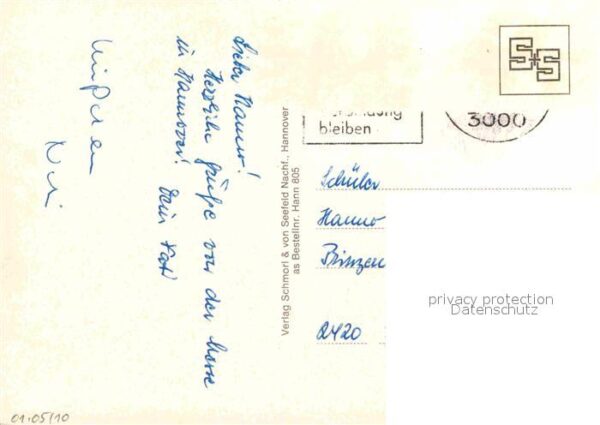 Lieber Hanno!
Herzliche Grüße von der Messe
in Hannover! Dein
Verlag Schmorl & von Seefeld Nachf., Hannover
as Bestellnr. Hann 805
S+S
bleiben
3000
Schüler
Hanno
Prinzen
2420
privacy protection
Datenschutz
01.05/10